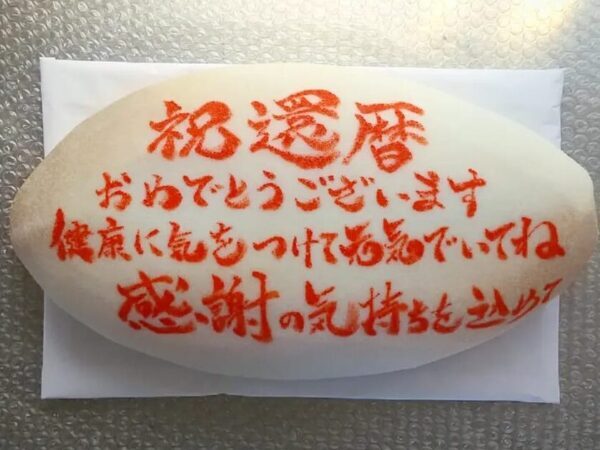 祝還暦
おめでとうございます
健康に気をつけて元気でいてね
感謝の気持ちを込めて